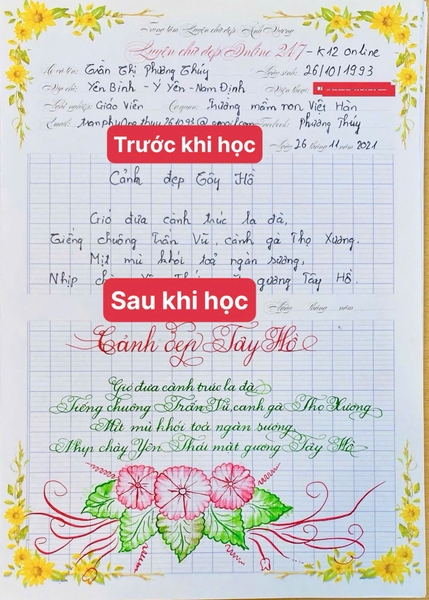 Trung tâm Luyện chữ đẹp Ánh Dương
Luyện chữ đẹp Online 247 - K12 online
Họ và tên: Trần Thị Phương Thúy Ngày sinh: 26/10/1993
Địa chỉ: Yên Bình - Ý Yên - Nam Định Điện thoại:
Nghề nghiệp: Giáo Viên Cơ quan: Trường mầm non Việt Hàn
Email: tranphuongthuy261093@gmail.com Facebook: Phương Thúy
Trước khi học
Ngày 26 tháng 11 năm 2021
Cảnh đẹp Tây Hồ
Gió đưa cành trúc la đà,
Tiếng chuông Trấn Vũ, canh gà Thọ Xương.
Mịt mù khói toả ngàn sương,
Nhịp gương Tây Hồ.
Sau khi học
Ngày tháng năm
Cảnh đẹp Tây Hồ
Gió đưa cành trúc la đà
Tiếng chuông Trấn Vũ, canh gà Thọ Xương
Mịt mù khói toả ngàn sương
Nhịp chày Yên Thái mặt gương Tây Hồ